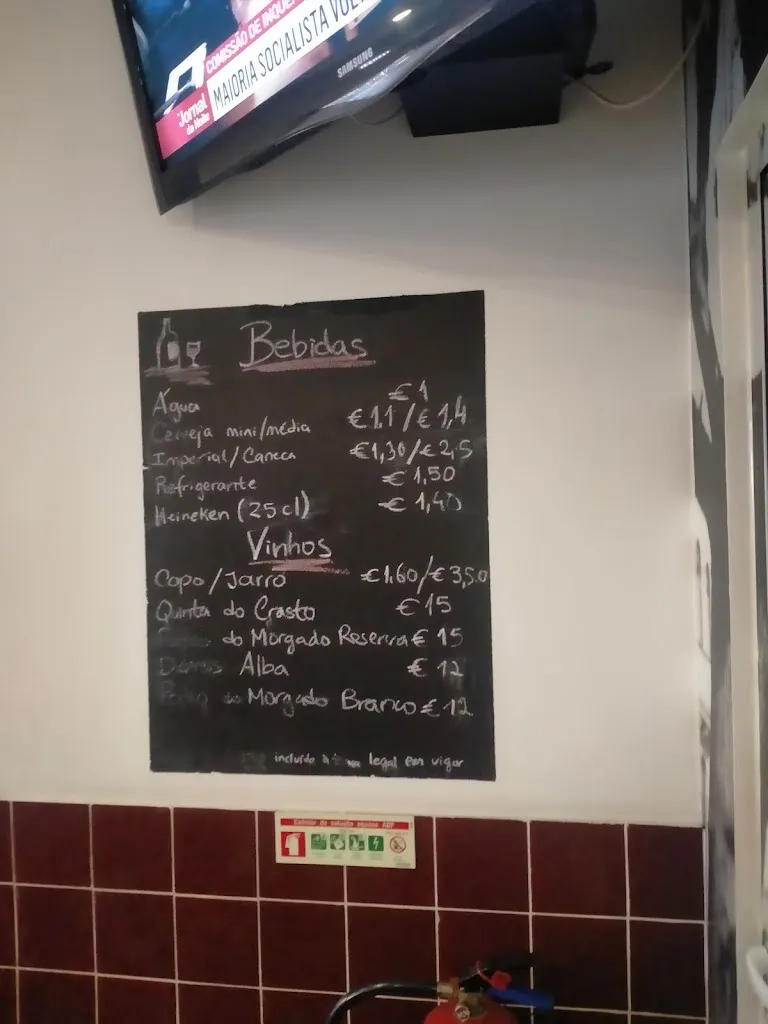 COMISSÃO DE
MAIORIA SOCIALISTA
Jornal
da Noite
SAMSUNG
Bebidas
Água € 1
Cerveja mini/média €1,1/€1,4
Imperial/Caneca €1,30/€2,5
Refrigerante € 1,50
Heineken (25cl) € 1,40
Vinhos
Copo/Jarro €1.60/€3,50
Quinta do Crasto €15
do Morgado Reserva € 15
Alba € 12
Morgado Branco € 12
incluído à taxa legal em vigor